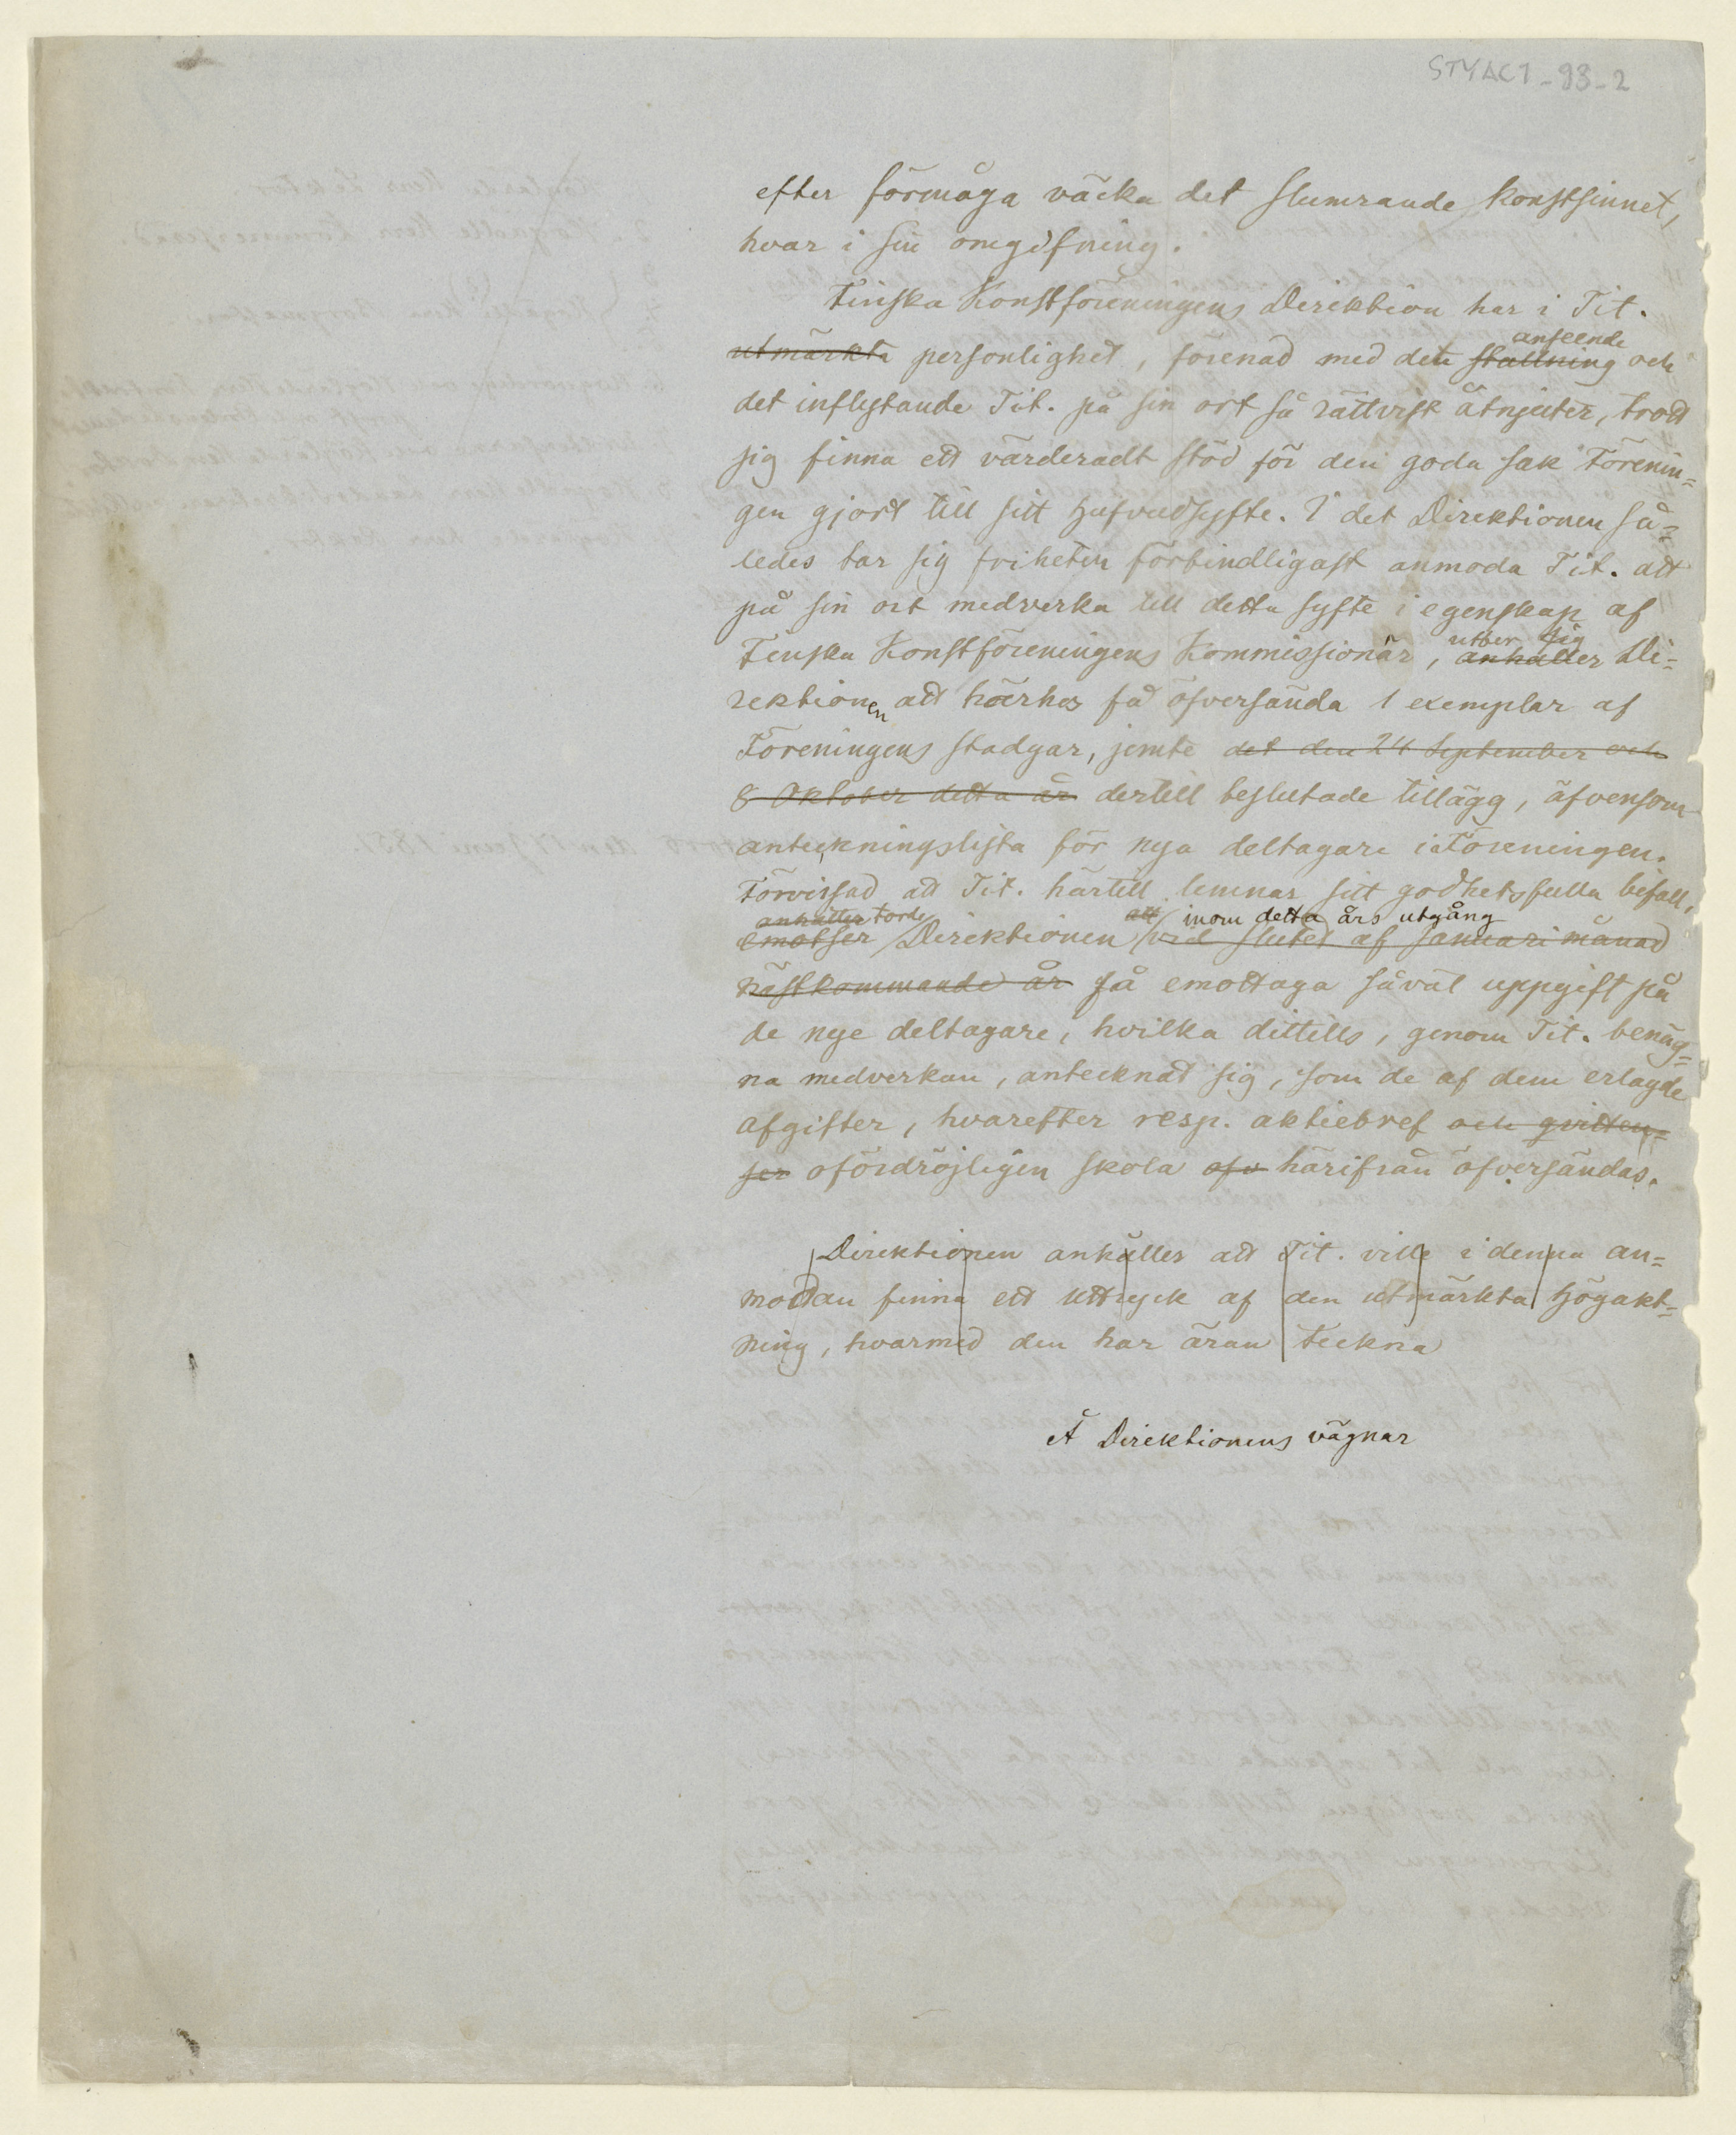 STYAC1-93-2
efter förmåga väcka det slumrande konstsinnet,
hvar i sin omgifning.
Finska Konstföreningens Direktion har i Tit.
anseende
utmärkta personlighet, förenad med den ställning och
det inflytande Tit. på sin ort så rättvist åtnjuter, trott
sig finna ett värderadt stöd för den goda sak Förenin=
gen gjort till sitt hufvudsyfte. I det Direktionen så=
ledes tar sig friheten förbindligast anmoda Tit. att
på sin ort medverka till detta syfte i egenskap af
utber sig
Finska Konstföreningens Kommissionär, anhåller Di=
rektionen att härhos få öfversända 1 exemplar af
Föreningens stadgar, jemte det den 24 September och
8 Oktober detta år dertill beslutade tillägg, äfvensom
anteckningslista för nya deltagare i Föreningen.
Förvissad att Tit. härtill lemnar sitt godhetsfulla bifall,
anhåller torde att inom detta års utgång
emotser Direktionen vid slutet af Januari månad
nästkommande år få emottaga såväl uppgift på
de nye deltagare, hvilka dittills, genom Tit. benäg=
na medverkan, antecknat sig, som de af dem erlagde
afgifter, hvarefter resp. aktiebref och qvitten=
ser ofördröjligen skola öfv härifrån öfversändas.
Direktionen anhåller att Tit. ville i denna an=
modan finna ett uttryck af den utmärkta högakt=
ning, hvarmed den har äran teckna
Å Direktionens vägnar